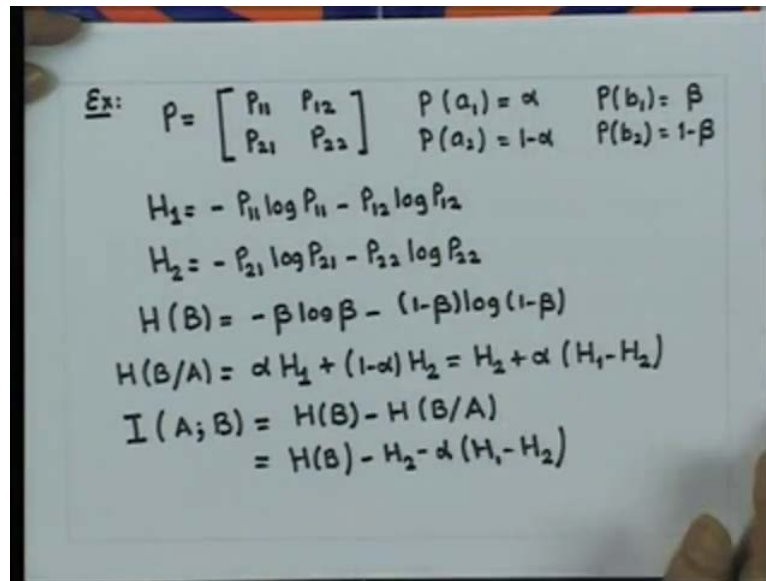 Ex: P = [ P11 P12 ] P(a1) = α P(b1) = β
[ P21 P22 ] P(a2) = 1-α P(b2) = 1-β
H1 = - P11 log P11 - P12 log P12
H2 = - P21 log P21 - P22 log P22
H(B) = - β log β - (1-β) log (1-β)
H(B/A) = α H1 + (1-α) H2 = H2 + α (H1-H2)
I(A;B) = H(B) - H(B/A)
= H(B) - H2 - α (H1-H2)